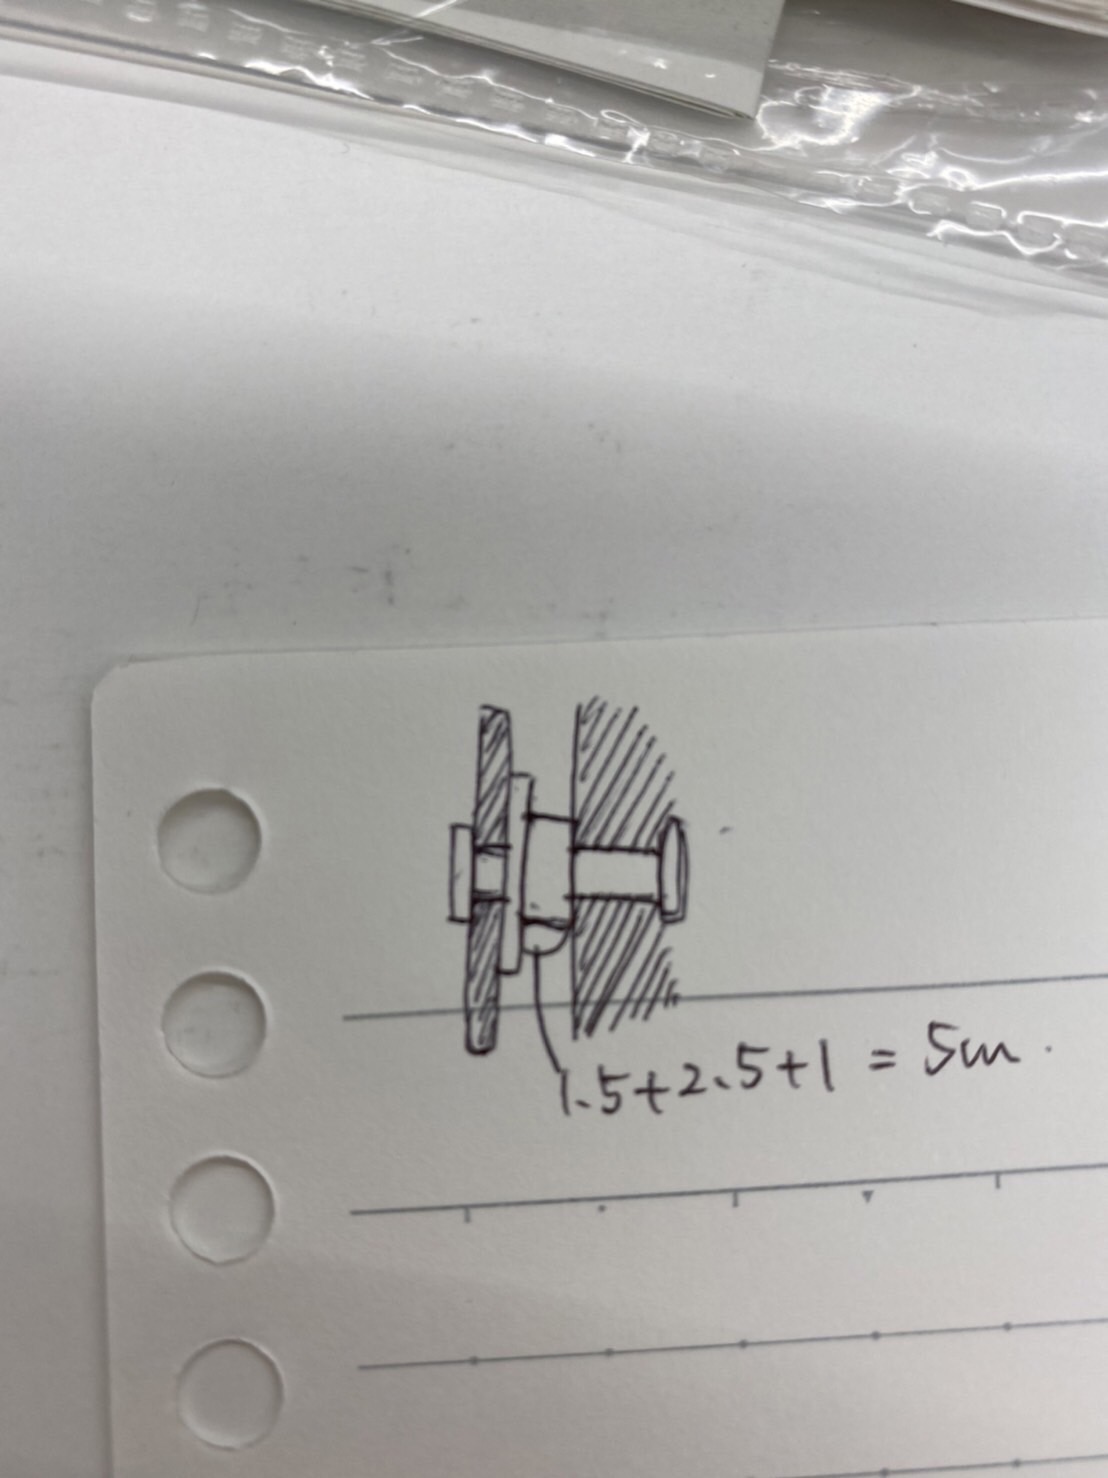 1.5+2.5+1 = 5cm.